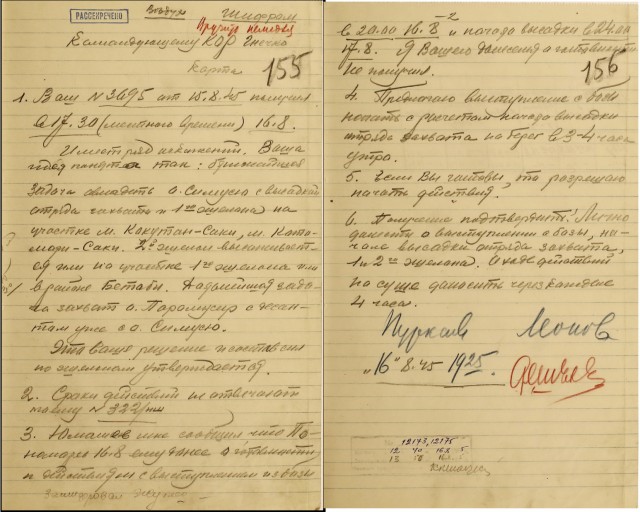 РАССЕКРЕЧЕНО
Воздух
Шифром
Вручить немедл.
Командующему КОР Гнечко
Карта
155
1. Ваш N 3695 от 15.8.45 получил
в 17.30 (местного времени) 16.8.
Имеет ряд искажений. Ваша
идея понята так: ближайшая
задача овладеть о. Симусю с высадкой
отряда захвата и 1го эшелона на
участке м. Кокутан-Саки, м. Кото-
мари-Саки. 2й эшелон высаживает-
ся или на участке 1го эшелона или
в районе Бетоби. Дальнейшая зада-
ча захват о. Парамусир с десан-
том уже с о. Симусю.
Это ваше решение и состав сил
по эшелонам утверждается.
2. Сроки действий не отвечают
моему N 322/нш
3. Юмашев мне сообщил что По-
номарев 16.8 ему донес о готовности
к действиям с выступлением из базы
в 20.00 16.8 и начало высадки в 24.00
17.8. Я Вашего донесения о готовности
не получил.
156
4. Предлагаю выступление с базы
начать с расчетом начала высадки
отряда захвата на берег в 3-4 часа
утра.
5. Если Вы готовы, то разрешаю
начать действия.
6. Получение подтвердить. Лично
доносить о выступлении с базы, на-
чале высадки отряда захвата,
1 и 2го эшелона. О ходе действий
на суше доносить через каждые
4 часа.
Пуркаев Леонов
"16" 8.45 1925
12173, 12175